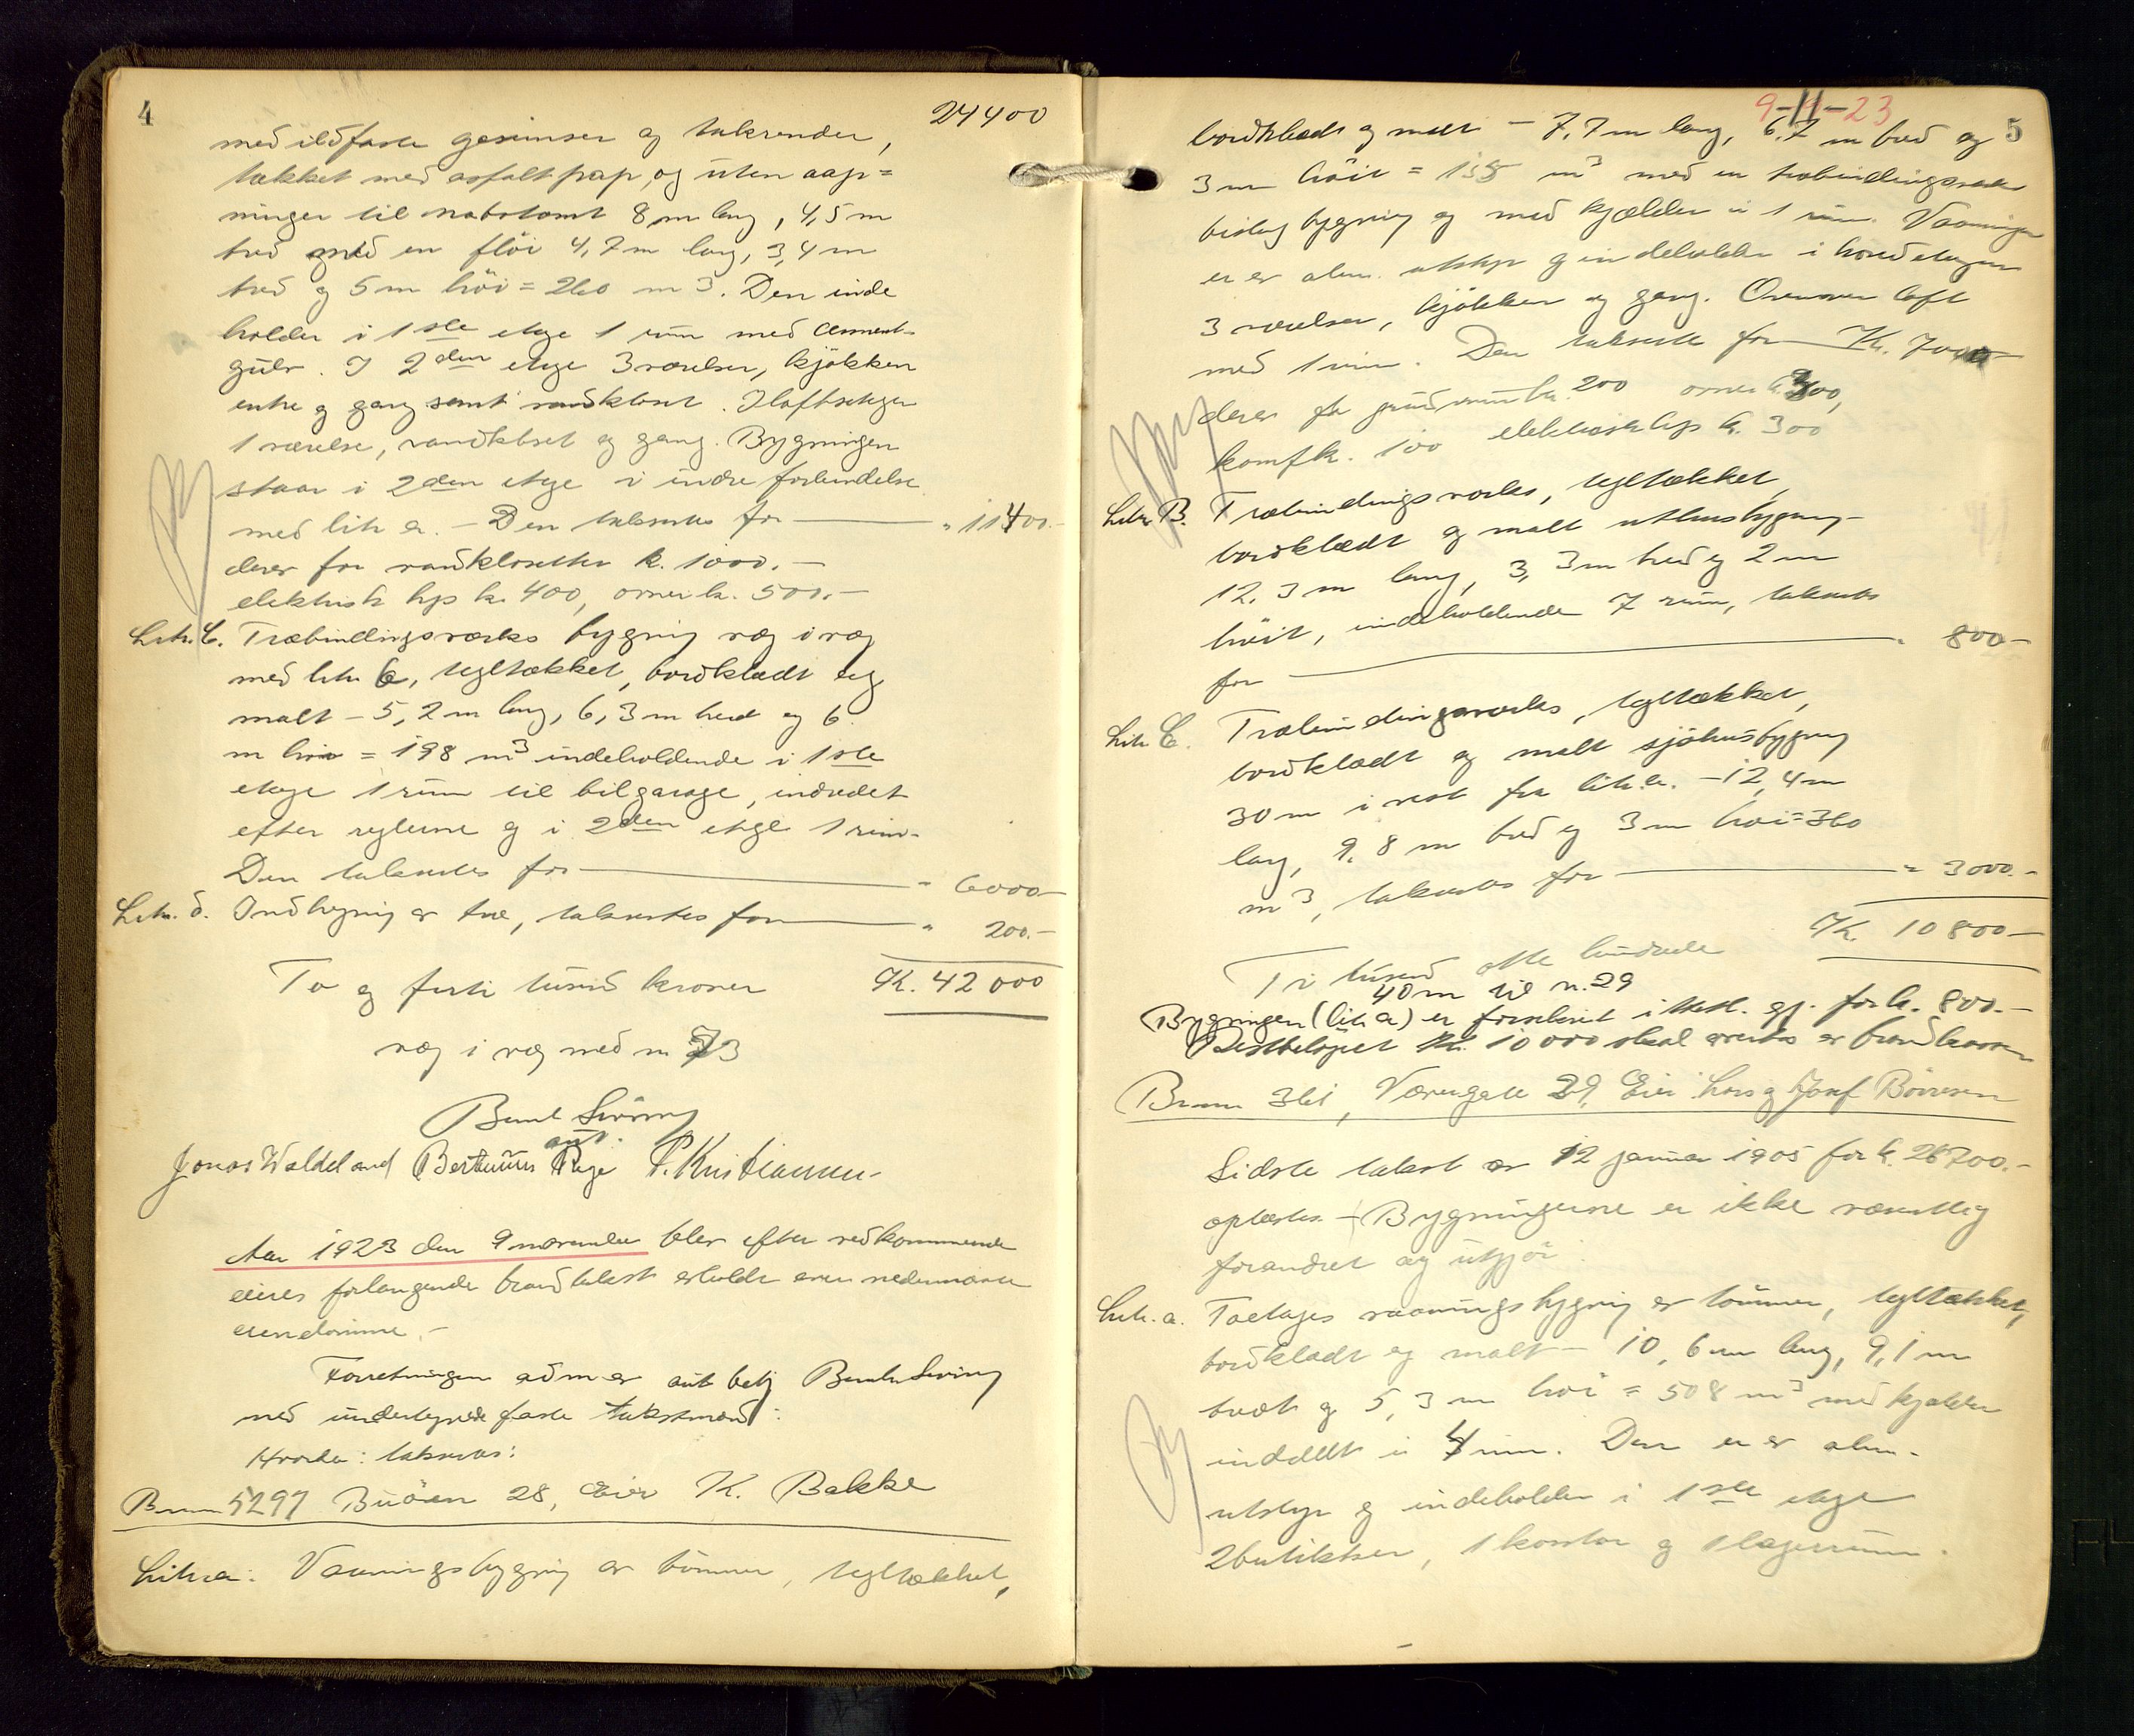 4
24400
med ildfaste gesimser og takrender,
tækket med asfaltpap, og uten aap=
ninger til nabotomt 8 m lang, 4,5 m
bred med en fløi 4,7 m lang, 3,4 m
bred og 5 m høi = 260 m3. Den inde
holder i 1ste etage 1 rum med cement-
gulv. I 2den etage 3 værelser, kjøkken
entre og gang samt vandklosset. I loftsetagen
1 værelse, vandkloset og gang. Bygningen
staar i 2den etage i indre forbindelse
med litr a. - Den takseres for " 11400.-
derav for vandklosetter kr. 1000.-
elektrisk lys kr. 400, ovner kr. 500.-
Litr. C. Træbindingsværks bygning væg i væg
med litr b, tegltækket, bordklædt og
malt - 5,2 m lang, 6,3 m bred og 6
m høi = 198 m3 indeholdende i 1ste
etage 1 rum til bilgarage, indredet
efter reglerne og i 2den etage 1 rum.
Den takseres for " 6000.-
Litr. d. Indhegning av træ, takseres for " 200.-
To og førti tusind kroner Kr. 42 000
væg i væg med nr 73
Bernt Sviring
aut.
Jonas Waldeland Bertinius Rege P. Kristiansen
Aar 1923 den 9 november blev efter vedkommende
eieres forlangende brandtakst avholdt over nedennævnte
eiendomme.-
Forretningen adm av aut bety Bernt Sviring
med undertegnede faste takstmænd:
Hvorda: takseres:
Brnr 5297 Buøen 28, Eier K. Bakke
Litr a: Vaaningsbygning av tømmer, tegltækket,
9-11-23
5
bordklædt og malt - 7,7 m lang, 6,7 m bred og
3 m høit = 155 m3 med en træbindingsværks
bislagbygning og med kjælder i 1 rum. Vaaningen
er av alm. utstyr og indeholder i hovedetagen
3 værelser, kjøkken og gang. Ovenover loft
med 1 rum. Den takseres for Kr. 7000
derav for grundmur kr. 200 ovner kr. 300,
komf kr. 100 elektrisk lys kr. 300
Litr B. Træbindingsværks, tegltækket,
bordklædt og malt uthusbygning
12,3 m lang, 3,3 m bred og 2 m
høit, indeholdende 7 rum, takseres
for " 800.-
Litr C. Træbindingsværks, tegltækket,
bordklædt og malt sjøhusbygning
30 m i vest fra litr. a. - 12,4 m
lang, 9,8 m bred og 3 m høi = 360
m3, takseres for " 3000.-
Kr. 10 800.-
Ti tusind otte hundrede
40 m til nr. 29
Bygningen (litr a) er forsikret i for kr. 800.-
Restbeløpet kr. 10 000 skal av brandkassen
Brnr 361, Værengate 29, Eier Lars og Josef Børresen
Sidste takst av 12 januar 1905 for kr. 26700.-
oplæstes. - Bygningerne er ikke væsentlig
forandret og utgjør:
Litr. a. Toetages vaaningsbygning av tømmer, tegltækket,
bordklædt og malt - 10,6 m lang, 9,1 m
bredt og 5,3 m høi = 508 m3 med kjælder
inddelt i 4 rum. Den er av alm.
utstyr og indeholder i 1ste etage
2 butikker, 1 kontor og 1 lagerrum.